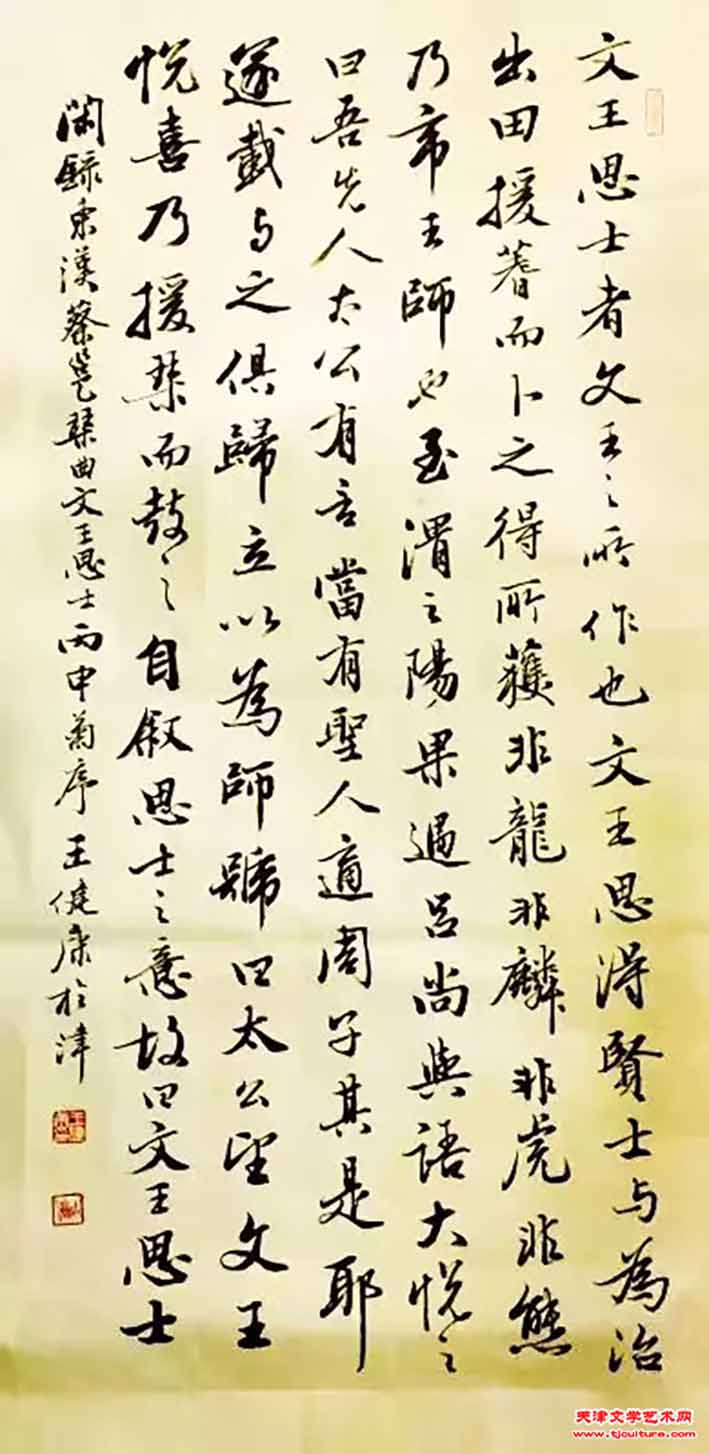 文王思士者文王之所作也文王思得賢士与為治
出田援蓍而卜之得所獲非龍非麟非虎非熊
乃帝王師也至渭之陽果遇吕尚與語大悦之
曰吾先人太公有言當有聖人適周子其是耶
遂載与之俱歸立以為師號曰太公望文王
悦喜乃援琴而鼓之自叙思士之意故曰文王思士
閑録東漢蔡邕琴曲文王思士丙申菊序王健康於津
天津文学艺术网
www.tjculture.com